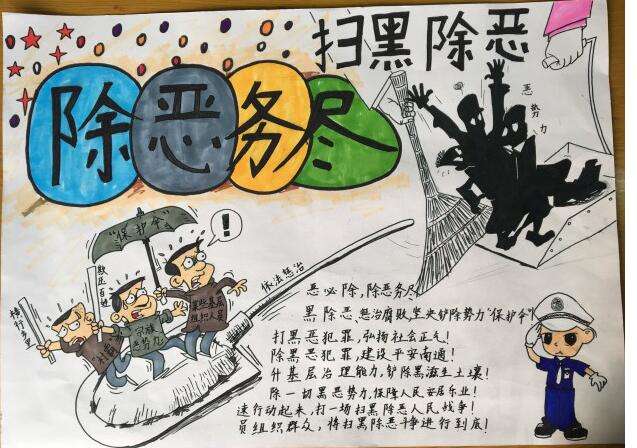 扫黑除恶
除恶务尽
恶势力
"保护伞"
!
欺压百姓
横行乡里
某些基层组织人员
宗族恶势力
依法惩治
恶必除,除恶务尽
黑除恶、惩治腐败,坚决铲除势力"保护伞"
打黑恶犯罪,弘扬社会正气!
除黑恶犯罪,建设平安南通!
升基层治理能力,铲除黑滋生土壤!
除一切黑恶势力,保障人民安居乐业!
速行动起来,打一场扫黑除恶人民战争!
员组织群众,将扫黑除恶斗争进行到底!